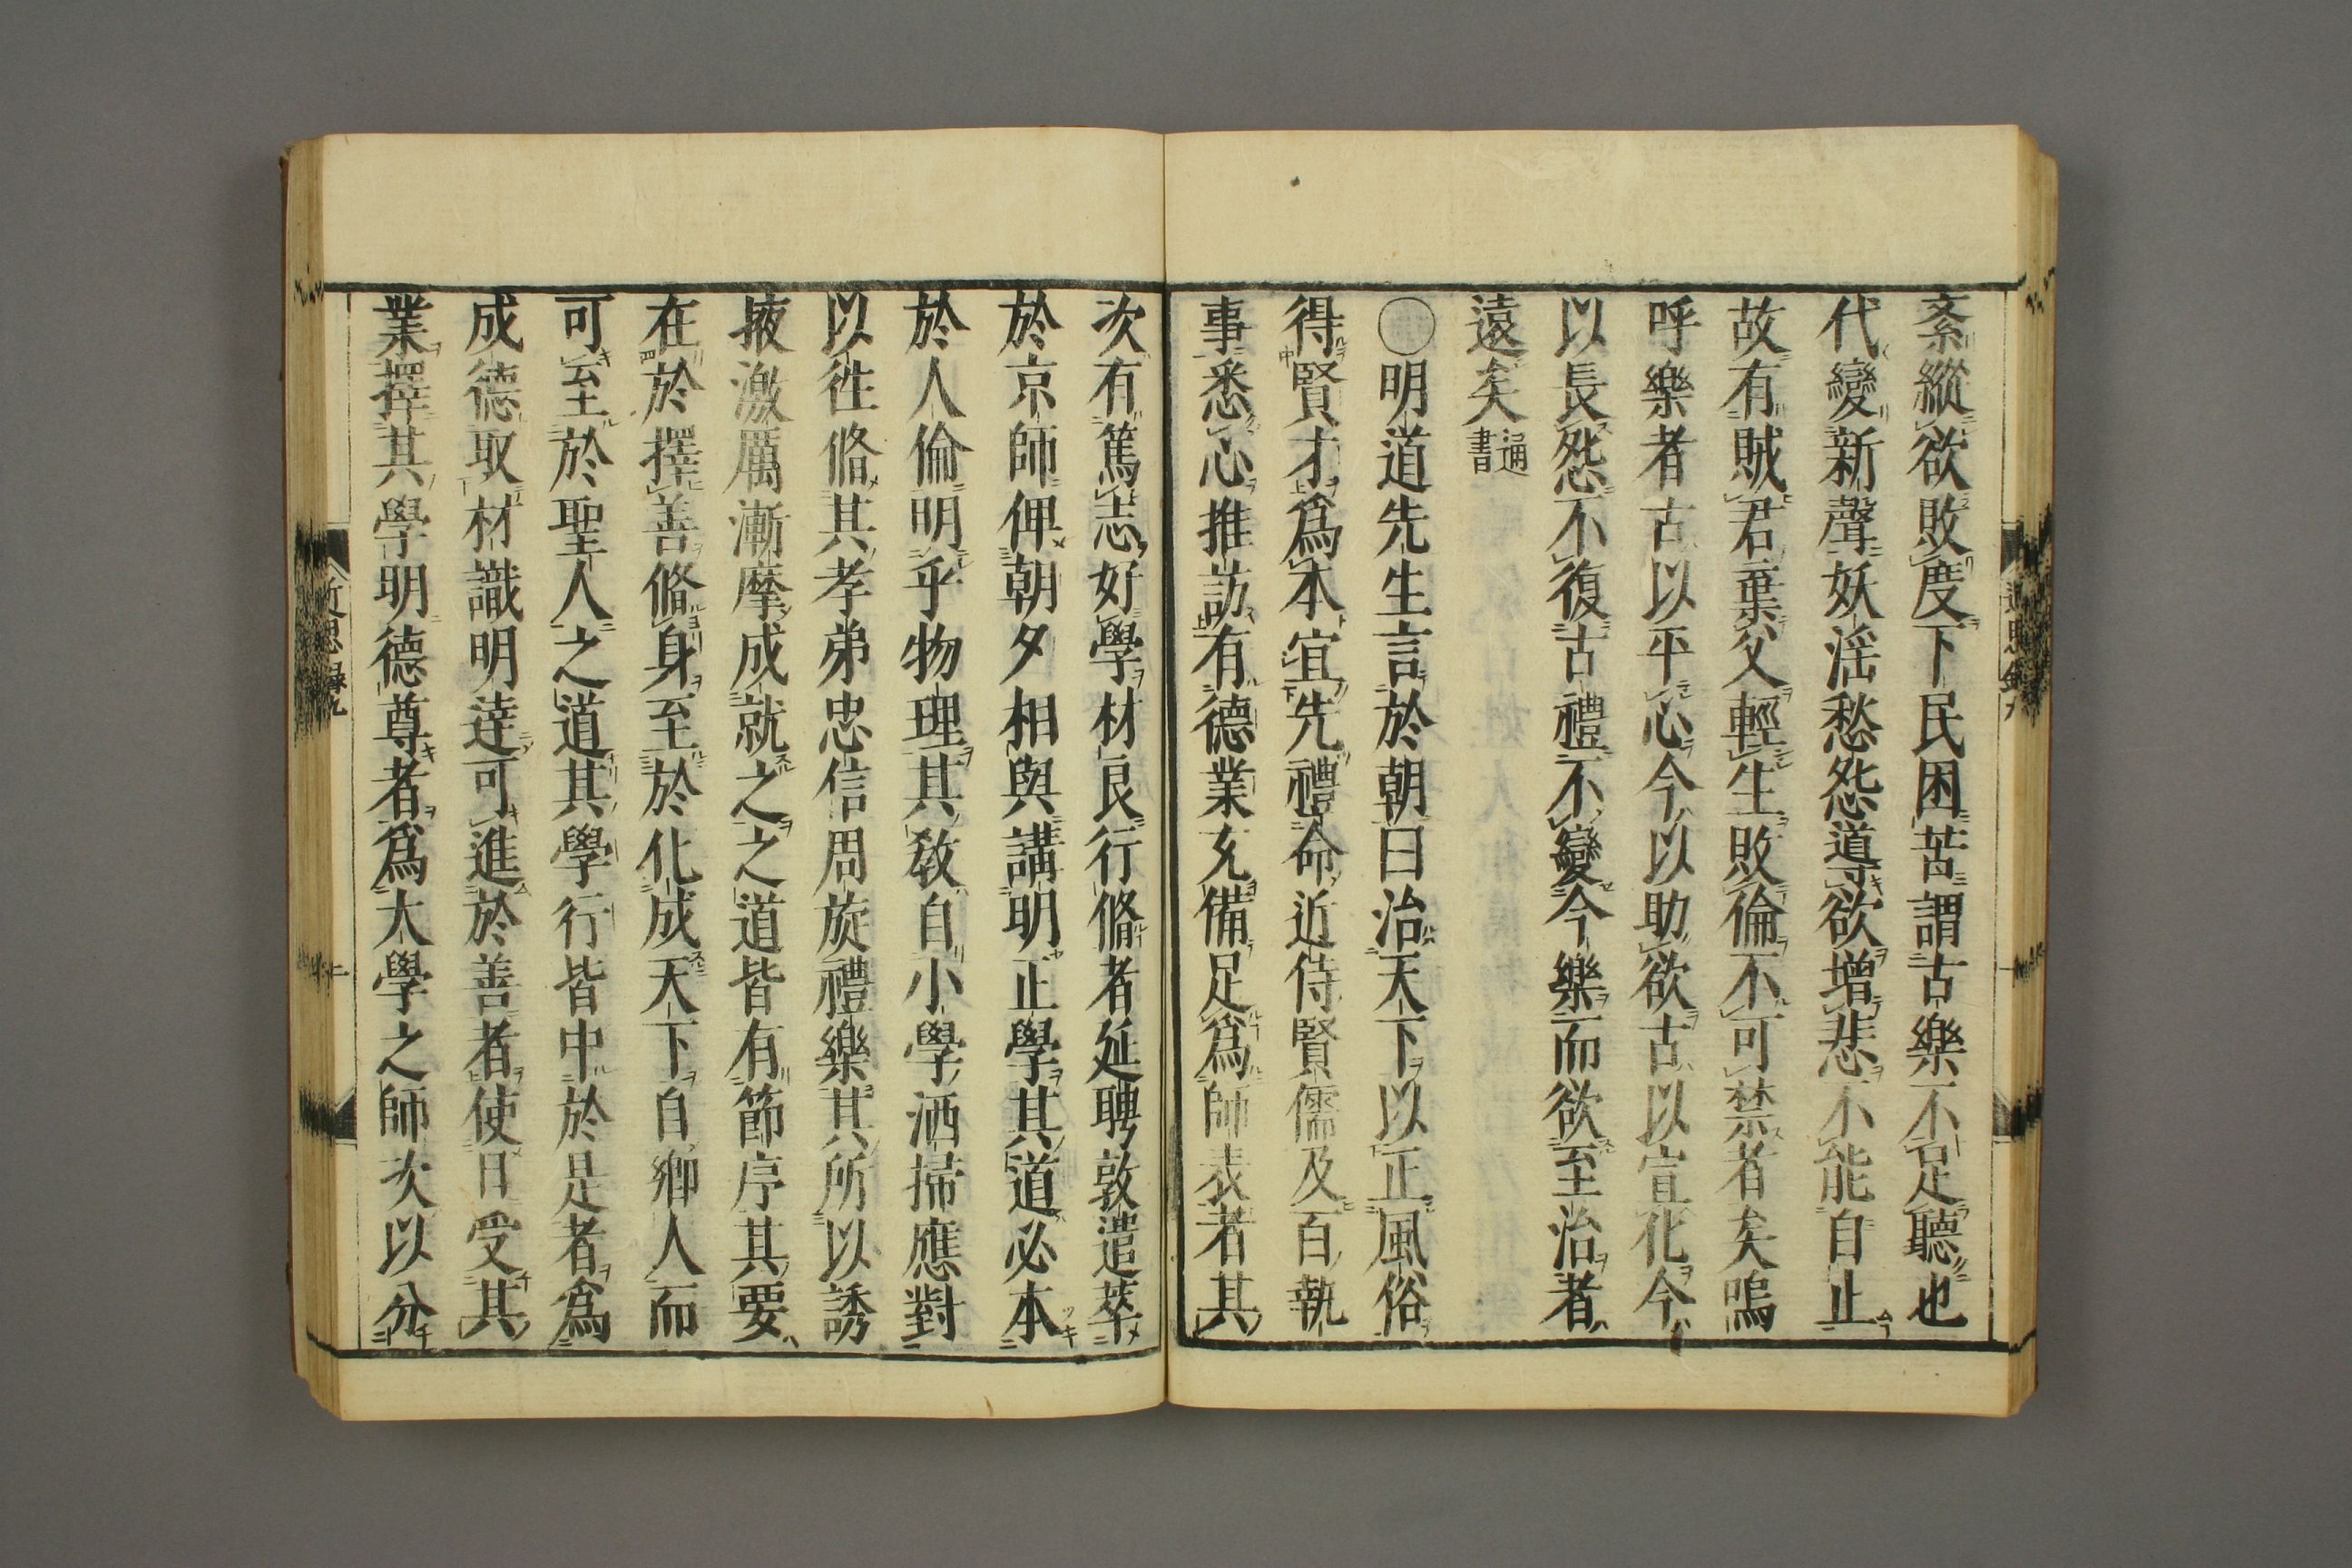 紊縱欲敗度下民困苦謂古樂不足聽也
代變新聲妖淫愁怨道欲增悲不能自止
故有賊君棄父輕生敗倫不可禁者矣嗚
呼樂者古以平心今以助欲古以宣化今
以長怨不復古禮不變今樂而欲至治者
遠矣通書
〇明道先生言於朝曰治天下以正風俗
得賢才爲本宜先禮命近侍賢儒及百執
事悉心推訪有德業充備足爲師表者其
次有篤志好學材良行脩者延聘敦遣萃
於京師俾朝夕相與講明正學其道必本
於人倫明乎物理其敎自小學洒掃應對
以徃脩其孝弟忠信周旋禮樂其所以誘
掖激厲漸摩成就之之道皆有節序其要
在於擇善脩身至於化成天下自鄉人而
可至於聖人之道其學行皆中於是者爲
成德取材識明達可進於善者使日受其
業擇其學明德尊者爲大學之師次以分
近思録九